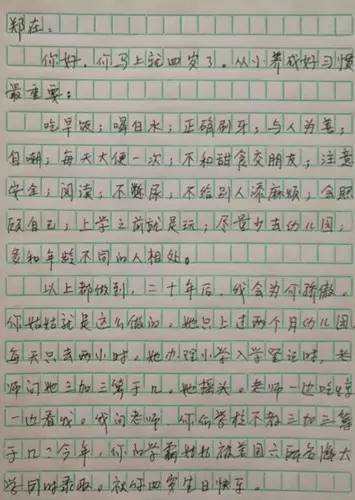 郑在：
你好，你马上就四岁了。从小养成好习惯
最重要：
吃早饭；喝白水；正确刷牙；与人为善；
自嘲；每天大便一次；不和甜食交朋友；注意
安全；阅读；不憋尿；不给别人添麻烦；会照
顾自己；上学之前就是玩；尽量少去幼儿园，
多和年龄不同的人相处。
以上都做到，二十年后，我会为你骄傲。
你姑姑就是这么做的。她只上过两个月幼儿园，
每天只去两小时。她办理小学入学登记时，老
师问她三加三等于几。她摇头。老师一边吃惊
一边看我。我问老师，你们学校不教三加三等
于几？今年，你的学霸姑姑被美国六所名海大
学同时录取。祝你四岁生日快乐。